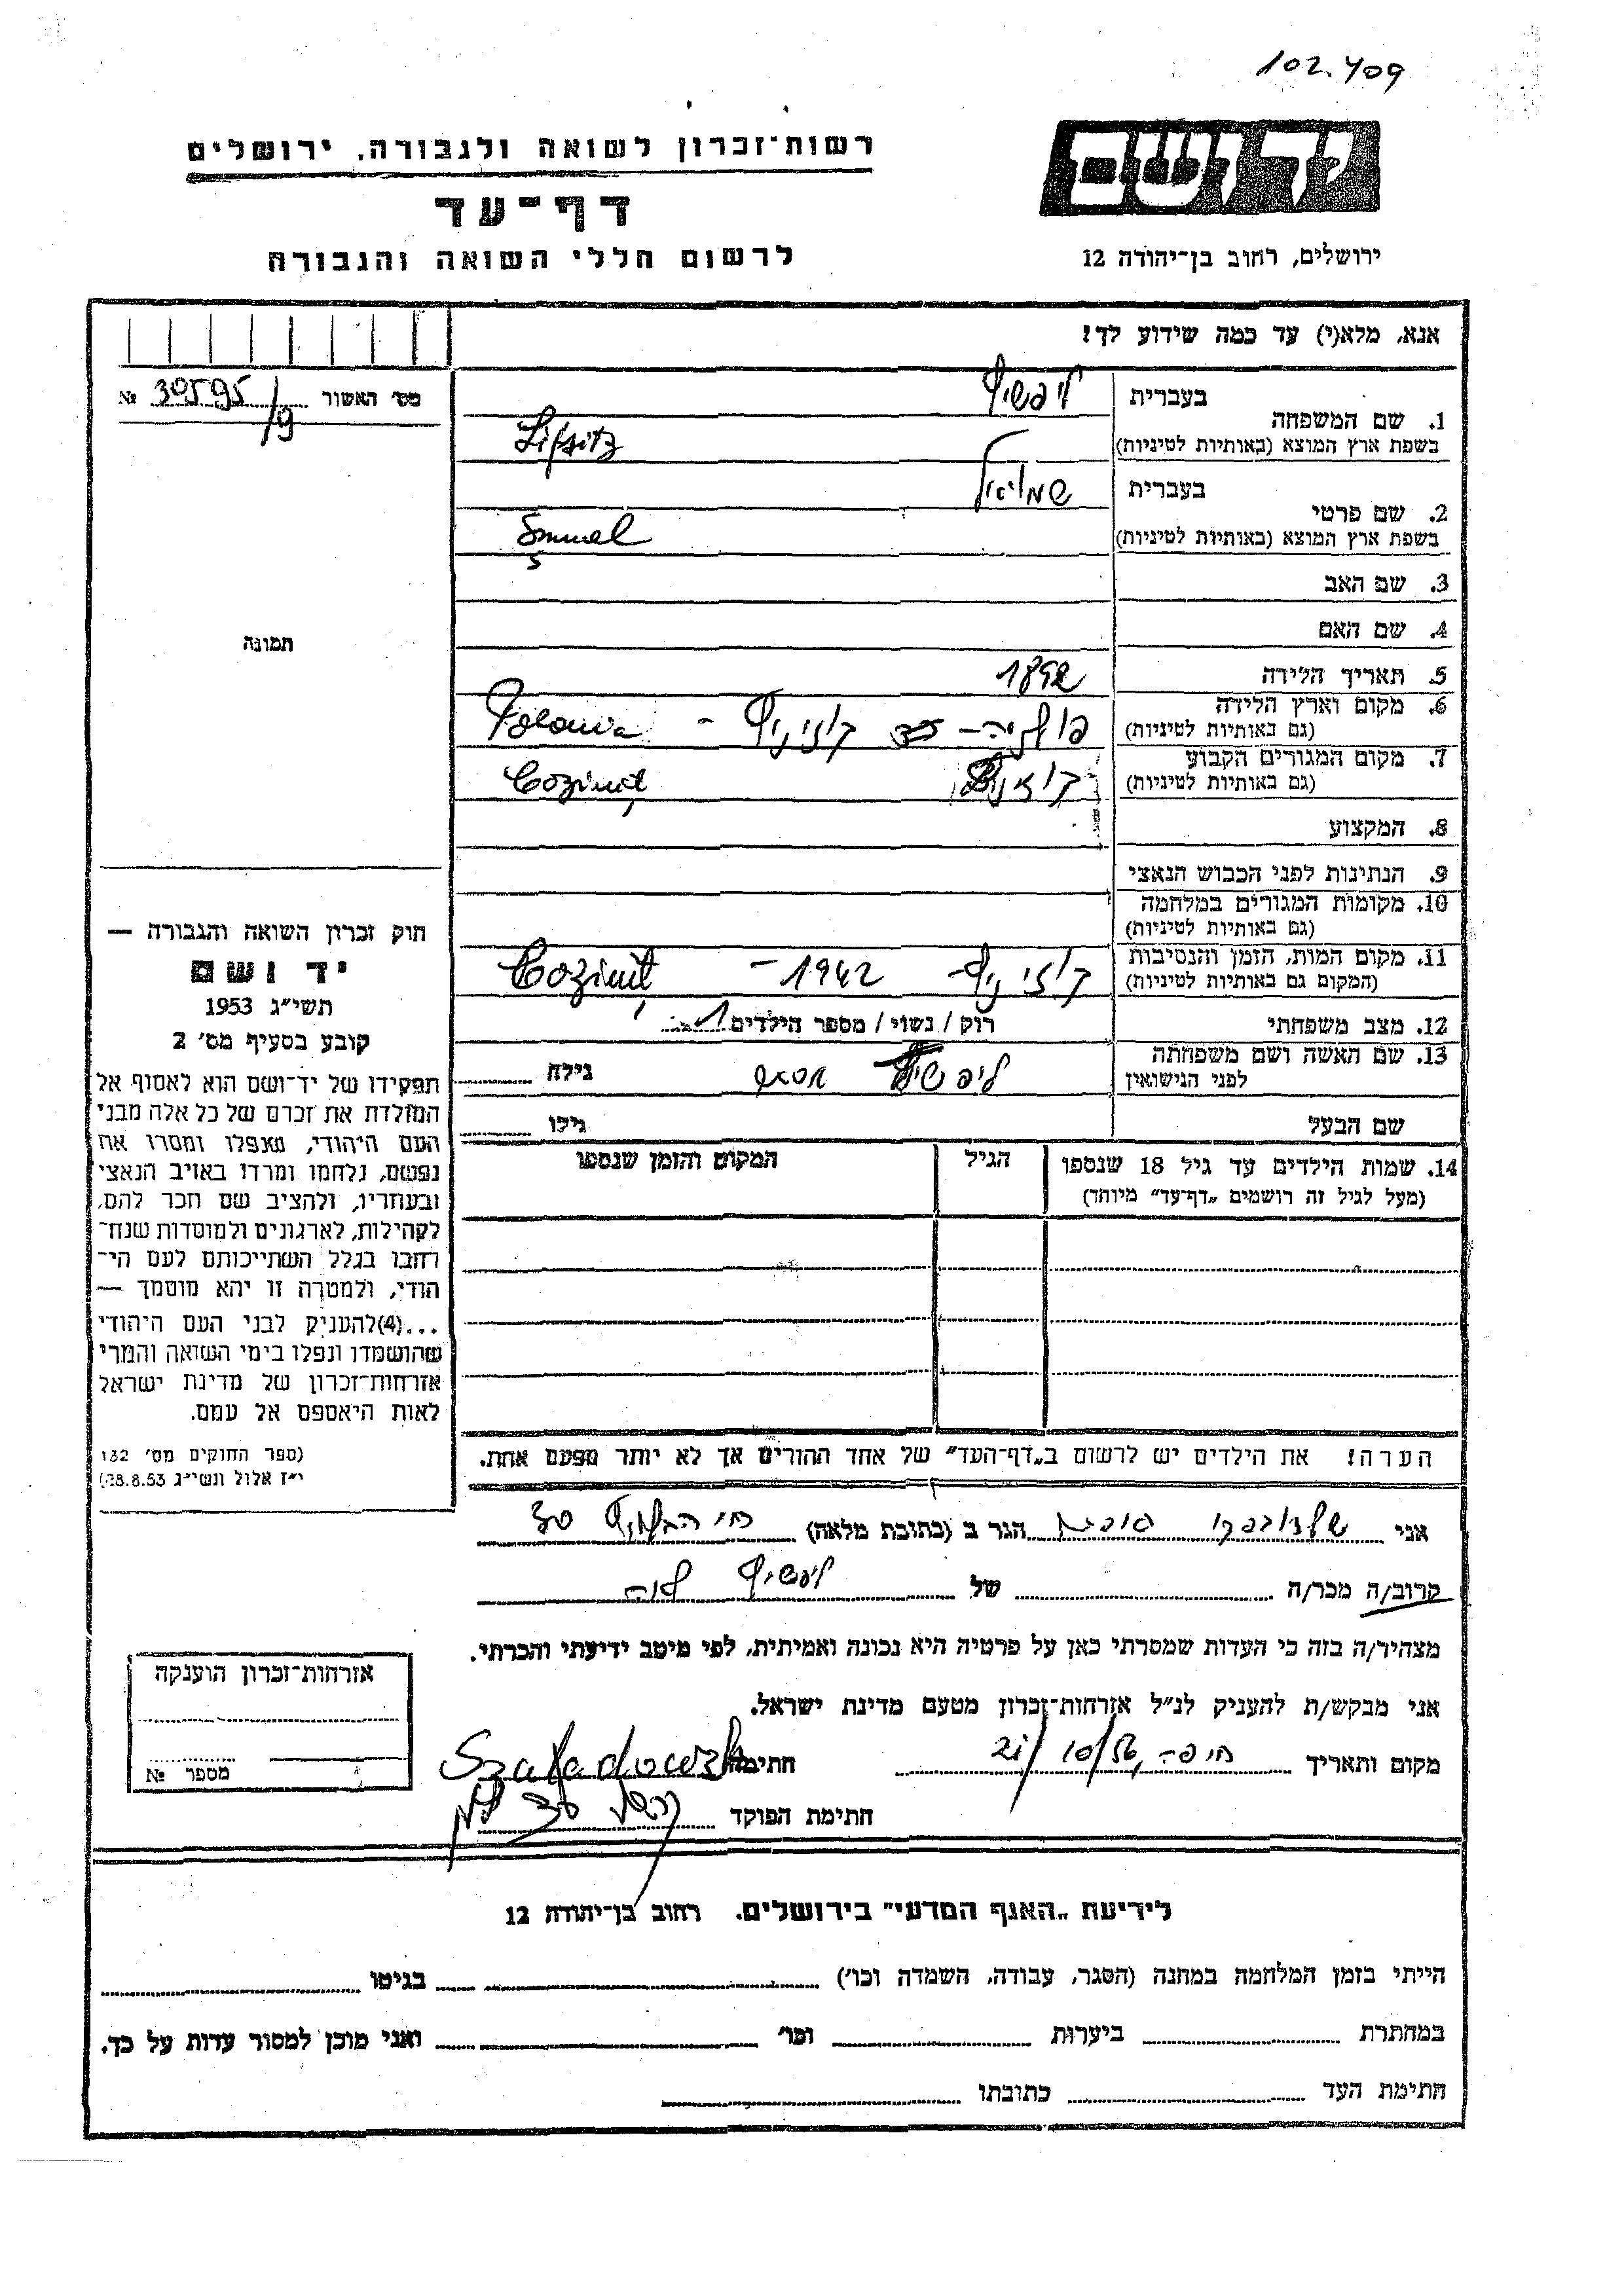 102.409
רשות־זכרון לשואה ולגבורה, ירושלים
דף־עד
לרשום חללי השואה והגבורה
ידושם
ירושלים, רחוב בן־יהודה 12
אנא, מלא(י) עד כמה שידוע לך!
מס׳ האשור № 30595/9
1. שם המשפחה
בעברית ליפשיץ
בשפת ארץ המוצא (באותיות לטיניות) Lifsitz
2. שם פרטי
בעברית שמואל
בשפת ארץ המוצא (באותיות לטיניות) Smuel
3. שם האב
4. שם האם
תמונה
5. תאריך הלידה 1892
6. מקום וארץ הלידה
(גם באותיות לטיניות) קוזיניץ - Polowa
7. מקום המגורים הקבוע
(גם באותיות לטיניות) קוזיניץ Cozinit
8. המקצוע
9. הנתינות לפני הכבוש הנאצי
10. מקומות המגורים במלחמה
(גם באותיות לטיניות)
11. מקום המות, הזמן והנסיבות
(המקום גם באותיות לטיניות) קוזיניץ - 1942 - Cozinit
12. מצב משפחתי רוק / נשוי / מספר הילדים 1
13. שם האשה ושם משפחתה
לפני הנישואין ליפשיץ גילה
שם הבעל גילו
14. שמות הילדים עד גיל 18 שנספו
(מעל לגיל זה רושמים „דף־עד” מיוחד)
הגיל
המקום והזמן שנספו
חוק זכרון השואה והגבורה —
יד ושם
תשי״ג 1953
קובע בסעיף מס׳ 2
תפקידו של יד־ושם הוא לאסוף אל
המולדת את זכרם של כל אלה מבני
העם היהודי, שנפלו ומסרו את
נפשם, נלחמו ומרדו באויב הנאצי
ובעוזריו, ולהציב שם וזכר להם,
לקהילות, לארגונים ולמוסדות שנח־
רחבו בגלל השתייכותם לעם הי־
הודי, ולמטרה זו יהא מוסמך —
...(4) להעניק לבני העם היהודי
שהושמדו ונפלו בימי השואה והמרי
אזרחות־זכרון של מדינת ישראל
לאות היאספם אל עמם.
(ספר החוקים מס׳ 132
י״ז אלול תשי״ג 28.8.53)
הערה! את הילדים יש לרשום ב„דף־העד” של אחד ההורים אך לא יותר מפעם אחת.
אני הגר ב (כתובת מלאה) 30
קרוב/ה מכר/ה של ליפשיץ
מצהיר/ה בזה כי העדות שמסרתי כאן על פרטיה היא נכונה ואמיתית, לפי מיטב ידיעתי והכרתי.
אני מבקש/ת להעניק לנ״ל אזרחות־זכרון מטעם מדינת ישראל.
מקום ותאריך חיפה, 21/10/56 חתימה
חתימת הפוקד
אזרחות־זכרון הוענקה
מספר №
לידיעת „האגף המדעי” בירושלים. רחוב בן־יהודה 12
הייתי בזמן המלחמה במחנה (הסגר, עבודה, השמדה וכו׳) בגיטו
במחתרת ביערות וכו׳ ואני מוכן למסור עדות על כך.
חתימת העד כתובתו